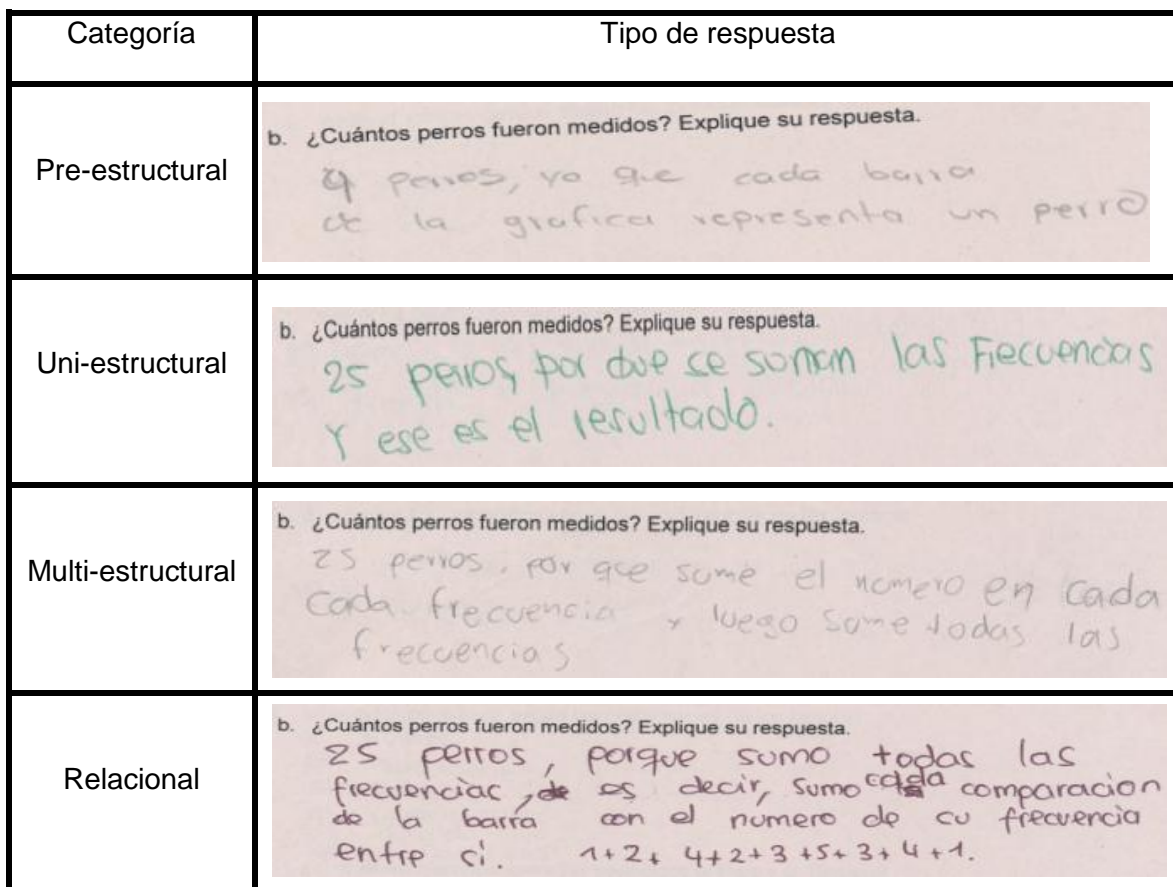 Categoría
Tipo de respuesta
Pre-estructural
b. ¿Cuántos perros fueron medidos? Explique su respuesta.
9 perros, ya que cada barra
de la grafica representa un perro
Uni-estructural
b. ¿Cuántos perros fueron medidos? Explique su respuesta.
25 perros, por que se suman las Frecuencias
Y ese es el resultado.
Multi-estructural
b. ¿Cuántos perros fueron medidos? Explique su respuesta.
25 perros, por que sume el numero en cada
cada frecuencia y luego sume todas las
frecuencias
Relacional
b. ¿Cuántos perros fueron medidos? Explique su respuesta.
25 perros, porque sumo todas las
frecuencias, es decir, sumo cada comparacion
de la barra con el número de cu frecuencia
entre si. 1+2+ 4+2+3+5+3+4+1.